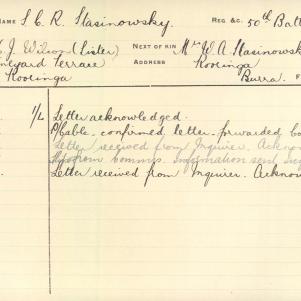 NAME S C. R. Stasinowsky. REG &c. 50th Batt
J. Wilson (Sister) NEXT OF KIN Mr W. A. Stasinowsk
Terrace ADDRESS Kooringa
Kooringa Burra.
1/L Letter acknowledged.
confirmed, letter forwarded
Letter received from Inquirer. Ackno
from Commis. Information sent
Letter received from Inquirer. Acknow